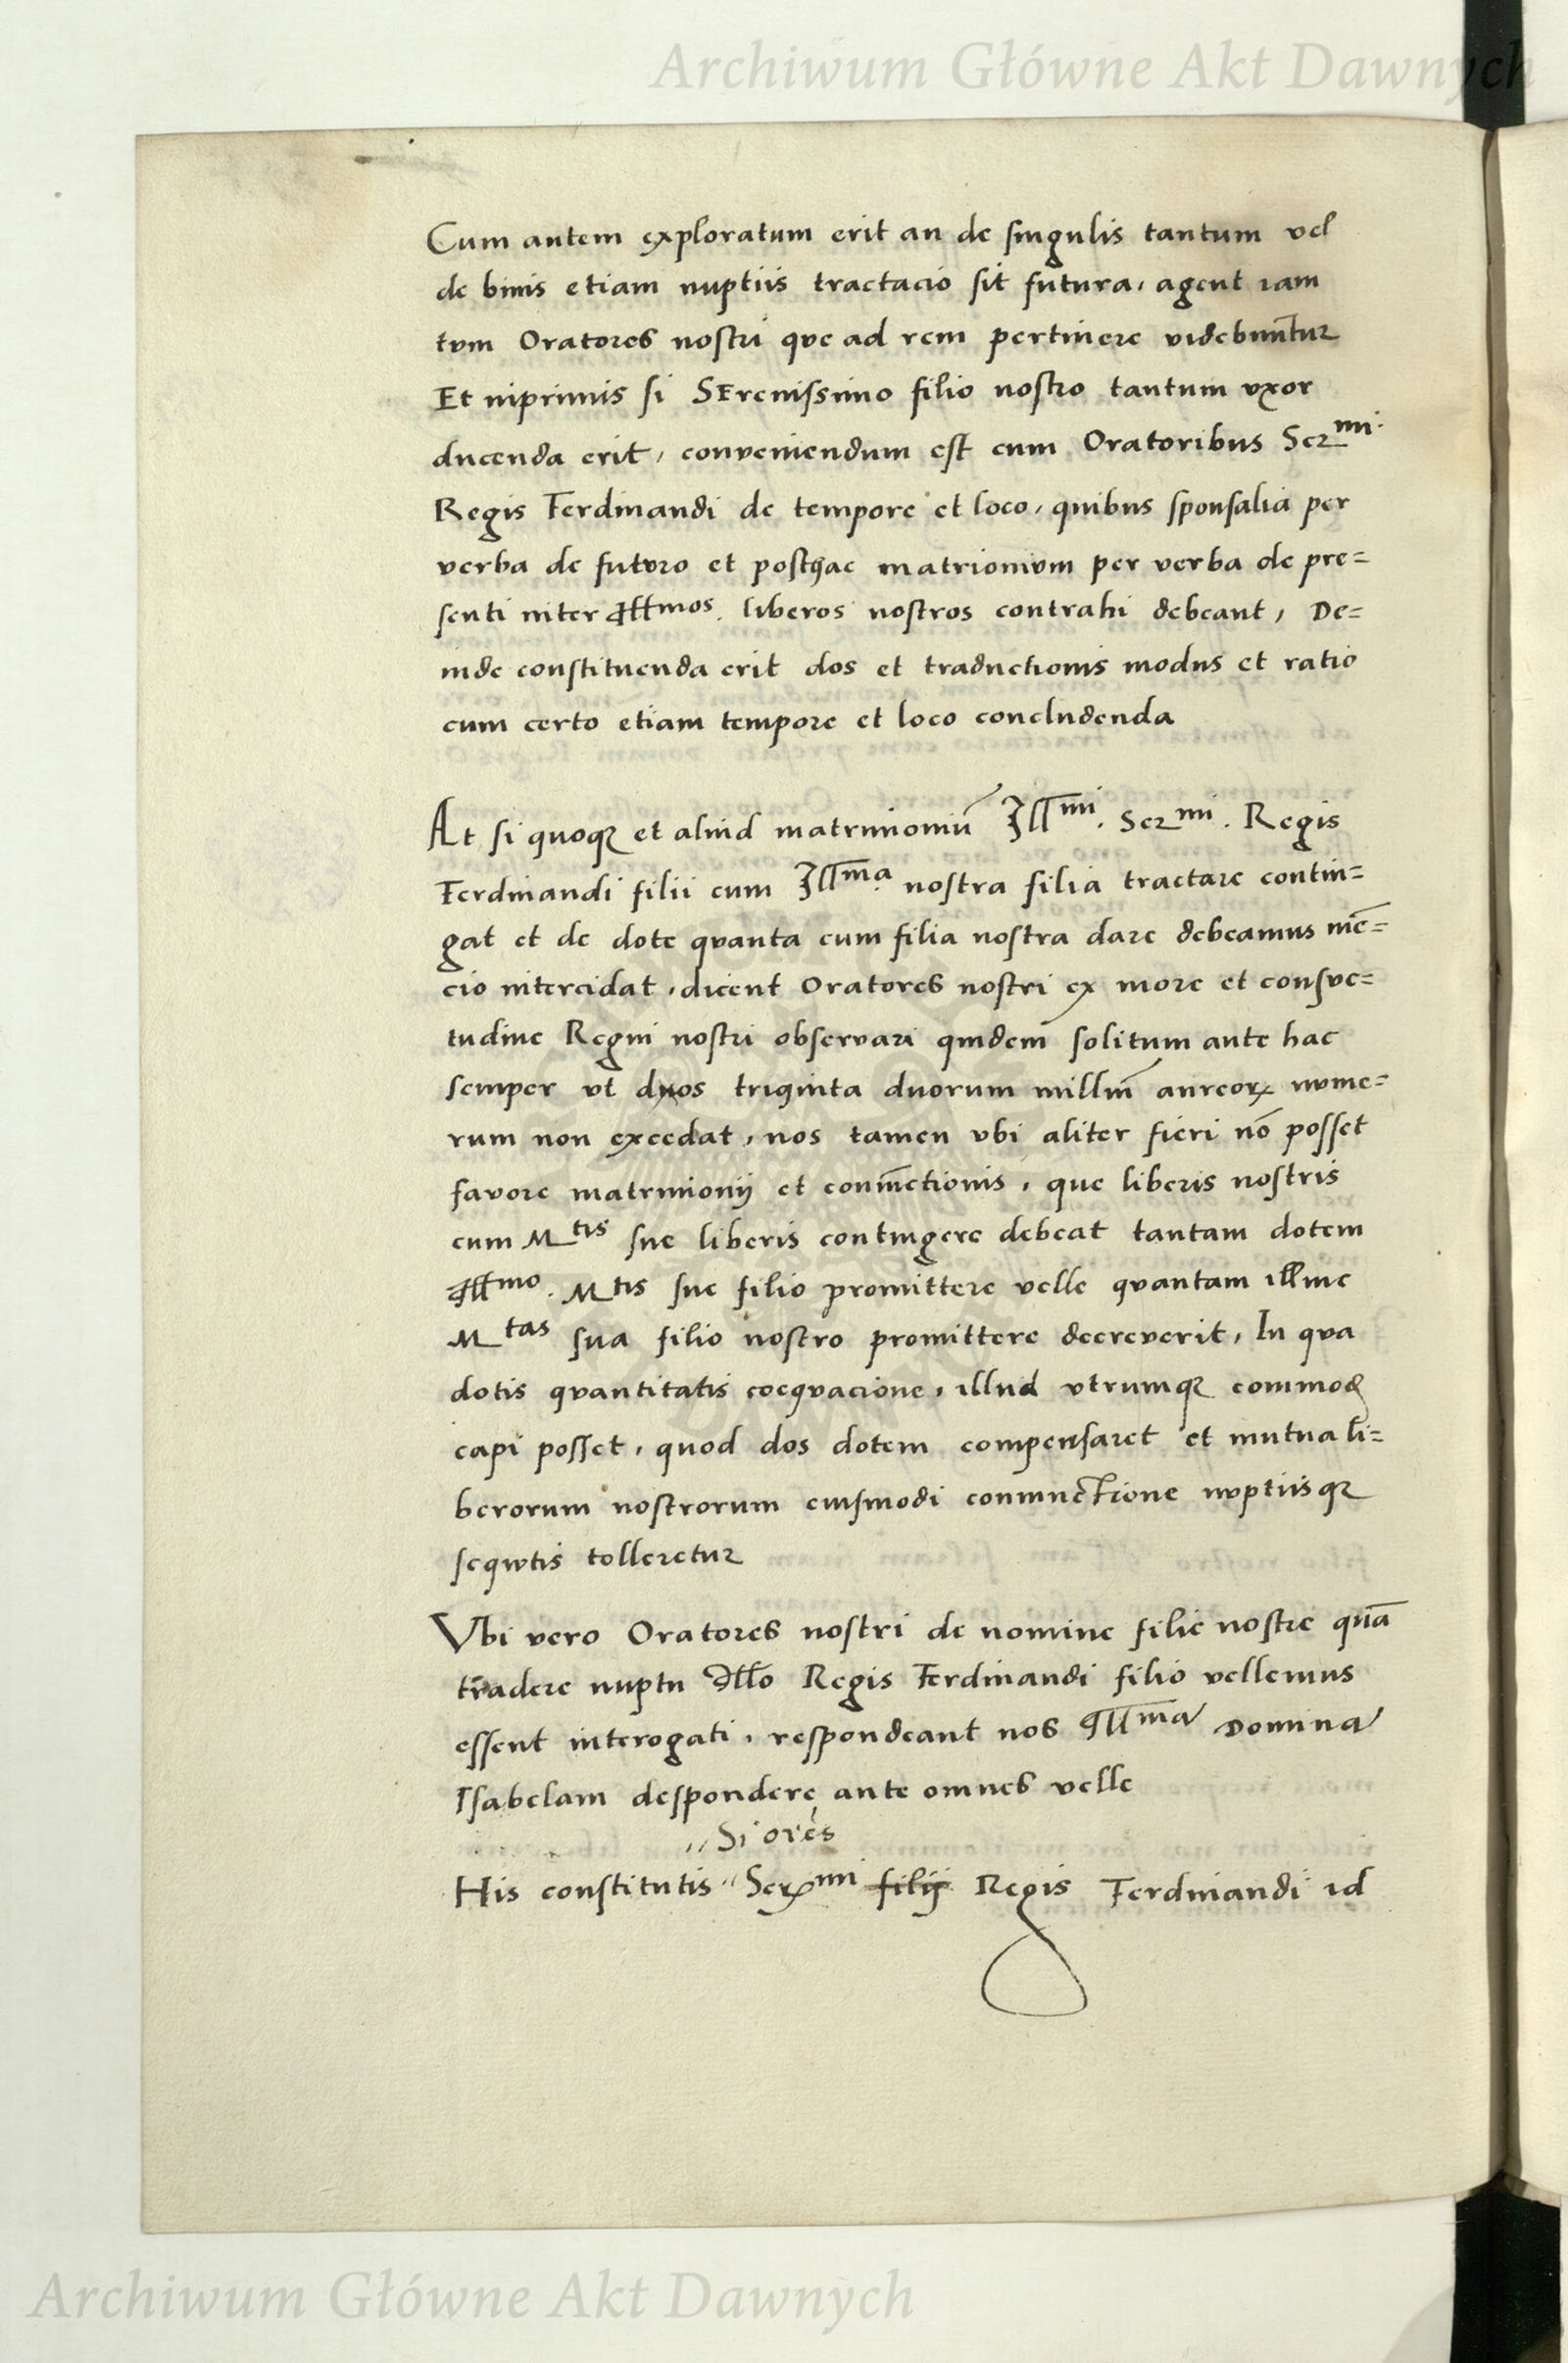 Archiwum Główne Akt Dawnych
Cum autem exploratum erit an de singulis tantum vel
de binis etiam nuptiis tractacio sit futura, agent iam
tvm Oratores nostri qve ad rem pertinere videbuntur
Et inprimis si SErenissimo filio nostro tantum vxor
ducenda erit, conveniendum est cum Oratoribus Ser^mi.
Regis Ferdinandi de tempore et loco, quibus sponsalia per
verba de futvro et posthac matriomivm per verba de pre=
senti inter Ill^mos. liberos nostros contrahi debeant, De=
inde constituenda erit dos et traductionis modus et ratio
cum certo etiam tempore et loco concludenda
At si quoqz et aliud matrimoniū Ill^mi. Ser^mi. Regis
Ferdinandi filii cum Ill^ma. nostra filia tractare contin=
gat et de dote qvanta cum filia nostra dare debeamus mē=
cio intercidat, dicent Oratores nostri ex more et consve=
tudine Regni nostri observari quidem solitum ante hac
semper vt dos triginta dvorum milliū aureoꝝ nvme=
rum non excedat, nos tamen vbi aliter fieri nō posset
favore matrimonij et coniūctionis, que liberis nostris
cum M^tis sue liberis contingere debeat tantam dotem
Ill^mo. M^tis sue filio promittere velle qvantam illinc
M^tas sua filio nostro promittere decreverit, In qva
dotis qvantitatis coeqvacione, illud vtrumqz commode
capi posset, quod dos dotem compensaret et mutua li=
berorum nostrorum eiusmodi coniunctione nvptiisqz
seqvtis tolleretur
Vbi vero Oratores nostri de nomine filie nostre quā
tradere nuptu Illo Regis Ferdinandi filio vellemus
essent interogati, respondeant nos Ill^ma Domina
Isabelam despondere ante omnes velle
,, Si orēs
His constitutis ,, Ser^mi filij Regis Ferdinandi id
Archiwum Główne Akt Dawnych